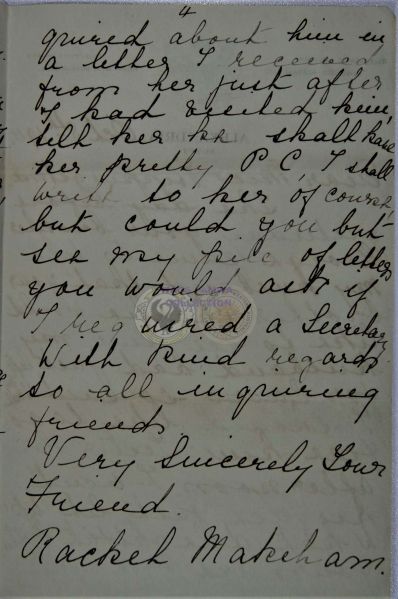 4
quired about him in
a letter I received
from her just after
I had visited him,
tell her he shall have
her pretty P C, I shall
write to her of course,
but could you but
see my pile of letters
you would ask if
I required a Secretary.
With kind regards
to all inquiring
friends
Very Sincerely Your
Friend.
Rachel Makeham.
COLLECTION